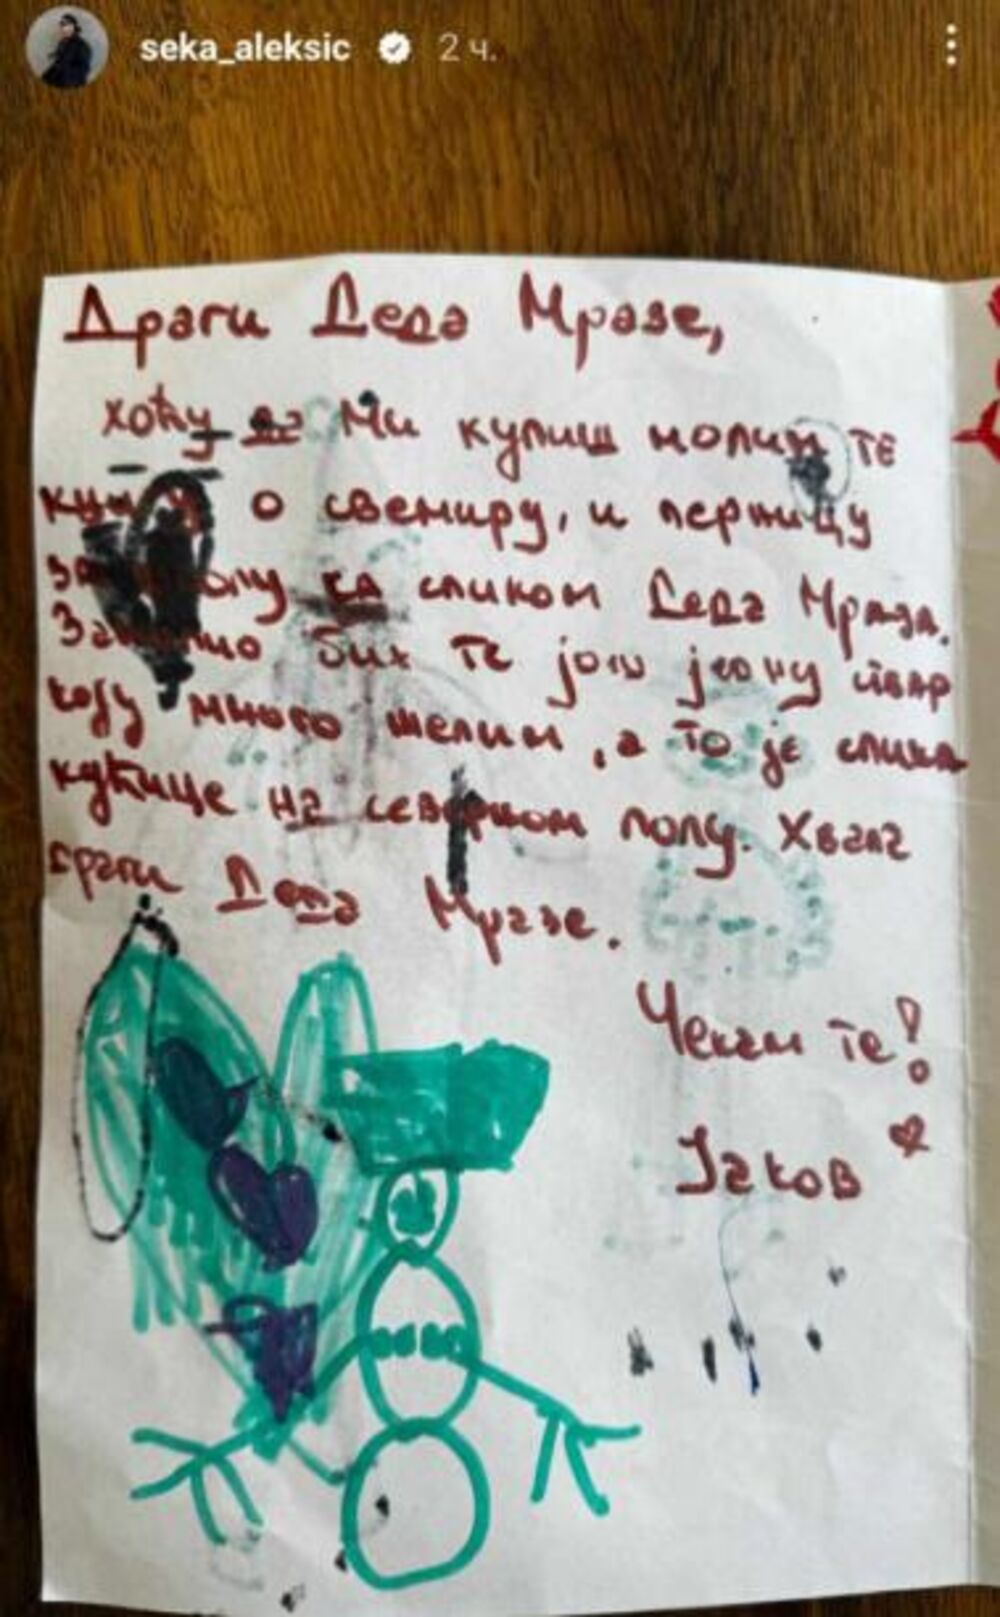 seka_aleksic 2 ч.
Драги Деда Мразе,
хоћу да ми купиш молим те
о свемиру, и перницу
са сликом Деда Мраза.
бих те још једну ствар
коју много желим, а то је слика
кућице на северном полу. Хвала
драги Деда Мразе.
Чекам те!
Јаков